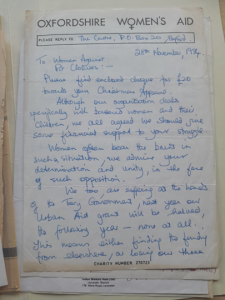 OXFORDSHIRE WOMEN'S AID
PLEASE REPLY TO The Union, P.O. Box 200, Oxford
25th November, 1984
To Women Against
Pit Closures -
Please find enclosed cheque for £20
towards your Christmas Appeal.
Although our organisation deals
specifically with battered women and their
children, we all agreed we should give
some financial support to your struggle.
Women often bear the brunt in
such situations, we admire your
determination and unity, in the face
of such opposition.
We too are suffering at the hands
of the Tory Government, next year our
Urban Aid grant will be halved,
the following year - none at all.
This means either finding the funding
from elsewhere, or losing our three
CHARITY NUMBER